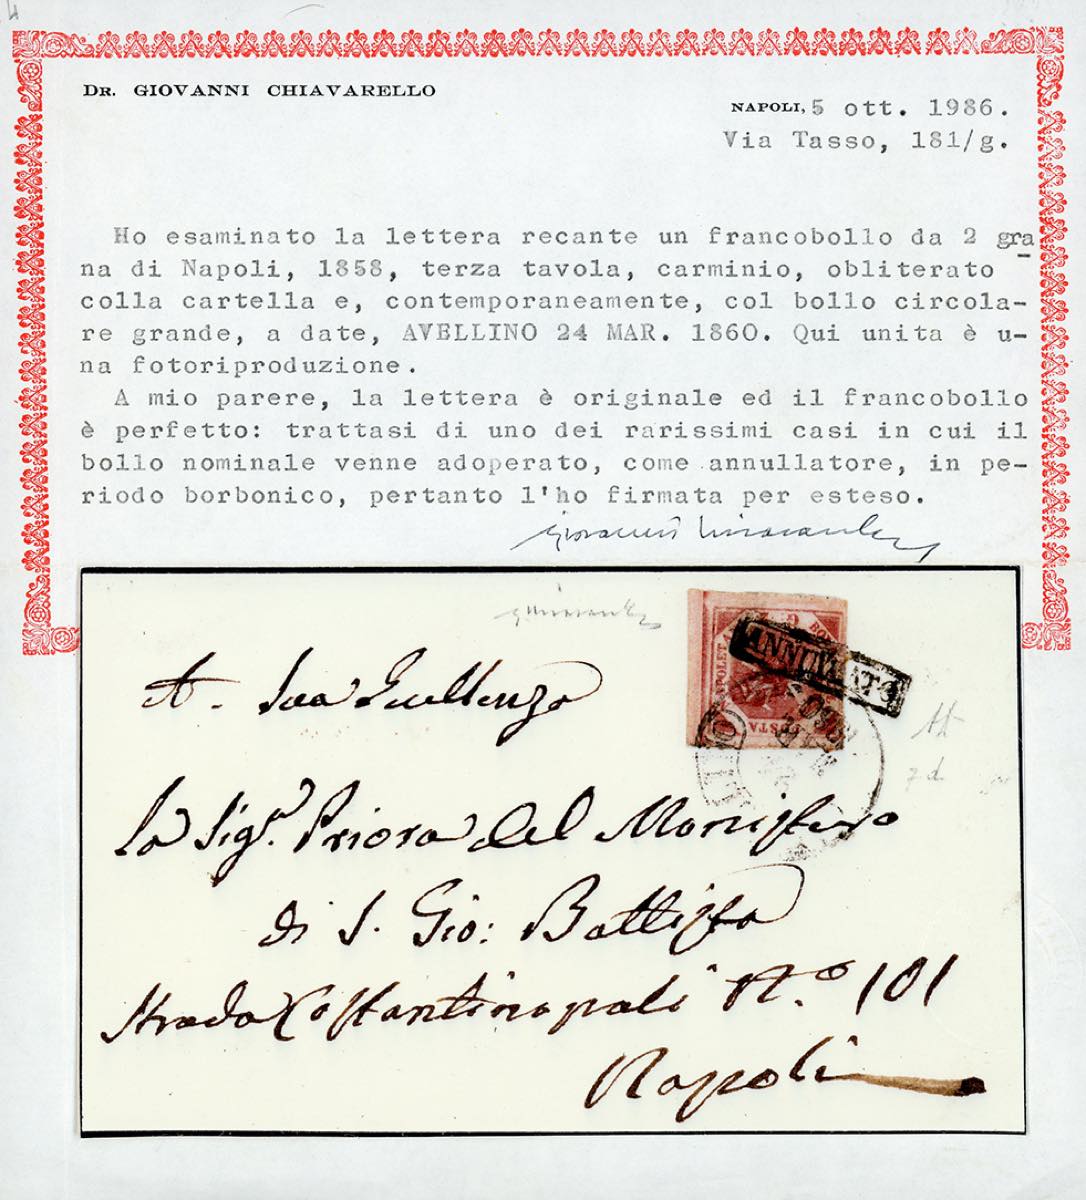 DR. GIOVANNI CHIAVARELLO
NAPOLI, 5 ott. 1986.
Via Tasso, 181/g.
Ho esaminato la lettera recante un francobollo da 2 gra
na di Napoli, 1858, terza tavola, carminio, obliterato
colla cartella e, contemporaneamente, col bollo circola-
re grande, a date, AVELLINO 24 MAR. 1860. Qui unita è u-
na fotoriproduzione.
A mio parere, la lettera è originale ed il francobollo
è perfetto: trattasi di uno dei rarissimi casi in cui il
bollo nominale venne adoperato, come annullatore, in pe-
riodo borbonico, pertanto l'ho firmata per esteso.
ANNULLATO
A. Sua Eccellenza
La Sigr. Priora del Monistero
di S. Gio: Battista
Strada Costantinopoli N.o 101
Napoli